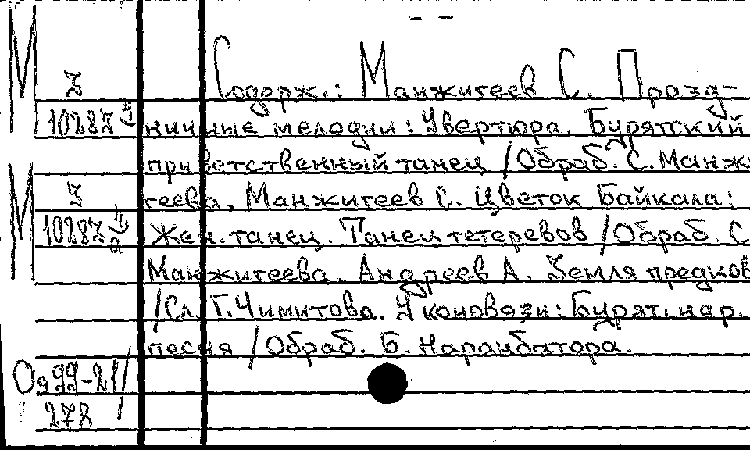 — —
М
З
10287
Содерж.: Манжигеев С. Празд-
ничные мелодии: Увертюра. Бурятский
приветственный танец /Обраб. С. Манжи-
М
З
10287
геева. Манжигеев С. Цветок Байкала:
Жен. танец. Танец тетеревов /Обраб. С.
Манжигеева. Андреев А. Земля предков
/Сл. Г. Чимитова. У коновязи: Бурят. нар.
песня /Обраб. Б. Наранбатора.
Од 99-21/
278